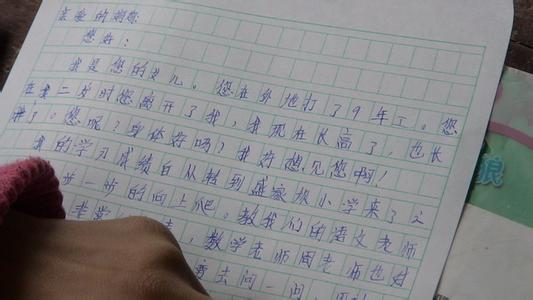 亲爱的妈妈
您好：
我是您的女儿。您在外地打了9年工。您
在我二岁时您离开了我，我现在长高了，也长
胖了。您呢？身体好吗？我好想见您啊！
我的学习成绩自从转到盛家坝小学来了之
步一步的向上爬。教我们的语文老师
非常 ，数学老师周老师也好
去问一问，
狼